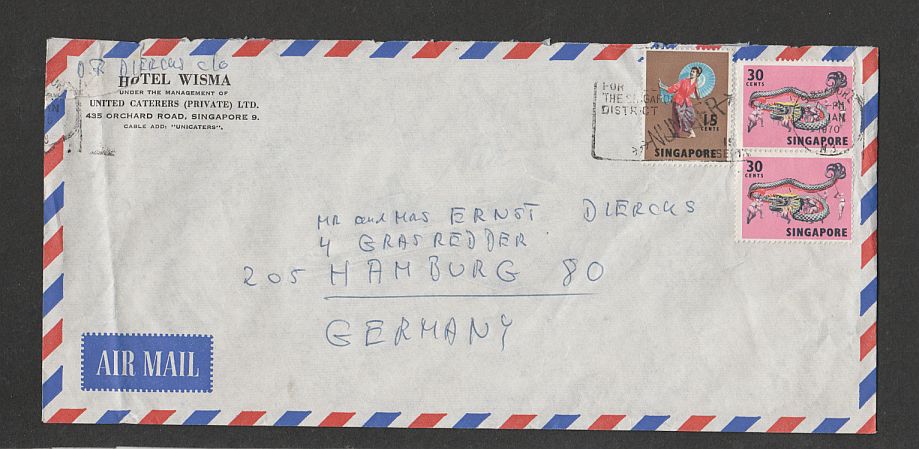 O.R DIERCKS C/O
HOTEL WISMA
UNDER THE MANAGEMENT OF
UNITED CATERERS (PRIVATE) LTD.
435 ORCHARD ROAD, SINGAPORE 9.
CABLE ADD: "UNICATERS".
FOR
THE SINGAP
DISTRICT
15
CENTS
SINGAPORE
30
CENTS
JAN
1970
SINGAPORE
30
CENTS
SINGAPORE
MR and MRS ERNST DIERCKS
4 GRASREDDER
205 HAMBURG 80
GERMANY
AIR MAIL